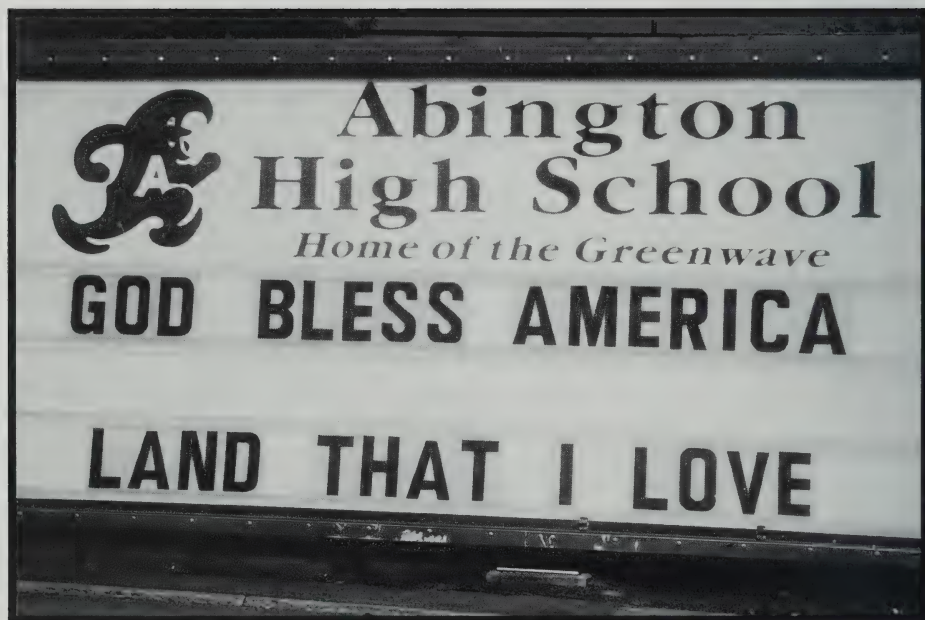 Abington
High School
Home of the Greenwave
A
GOD BLESS AMERICA
LAND THAT I LOVE